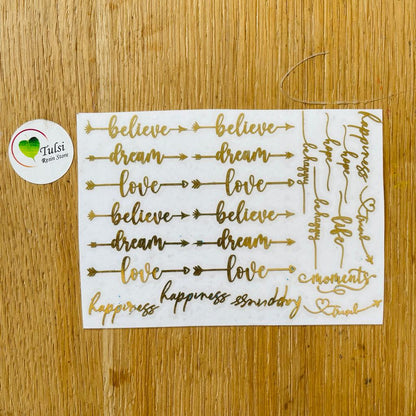 Tulsi
Resin Store
believe believe
dream dream
love love
believe believe
dream dream
love love
happiness happiness happiness
be happy
be happy
hope
hope
life
happiness
moments